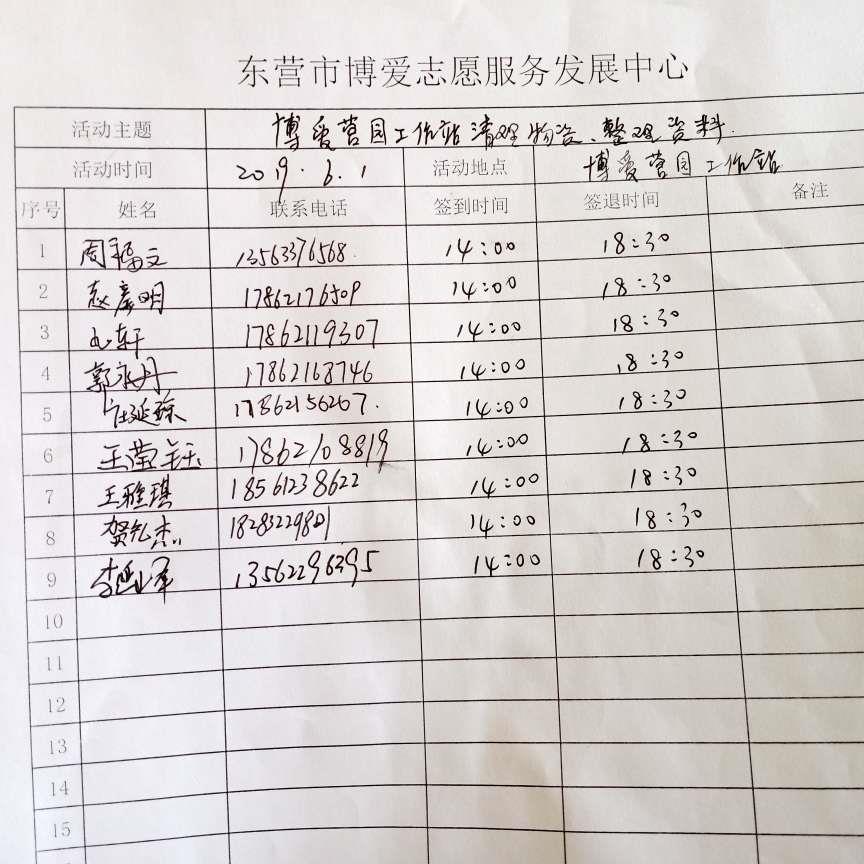 东营市博爱志愿服务发展中心
活动主题 博爱营园工作站清理物资、整理资料.
活动时间 2019.6.1 活动地点 博爱营园工作站
序号 姓名 联系电话 签到时间 签退时间 备注
1 周福文 13563376568. 14:00 18:30
2 赵彦明 17862176509 14:00 18:30
3 轩 17862119307 14:00 18:30
4 郭永丹 17862168746 14:00 18:30
5 17862156267. 14:00 18:30
6 王莹钰 17862108819 14:00 18:30
7 王雅琪 18561238622 14:00 18:30
8 贺 杰 14:00 18:30
9 李 13562296395 14:00 18:30
10
11
12
13
14
15